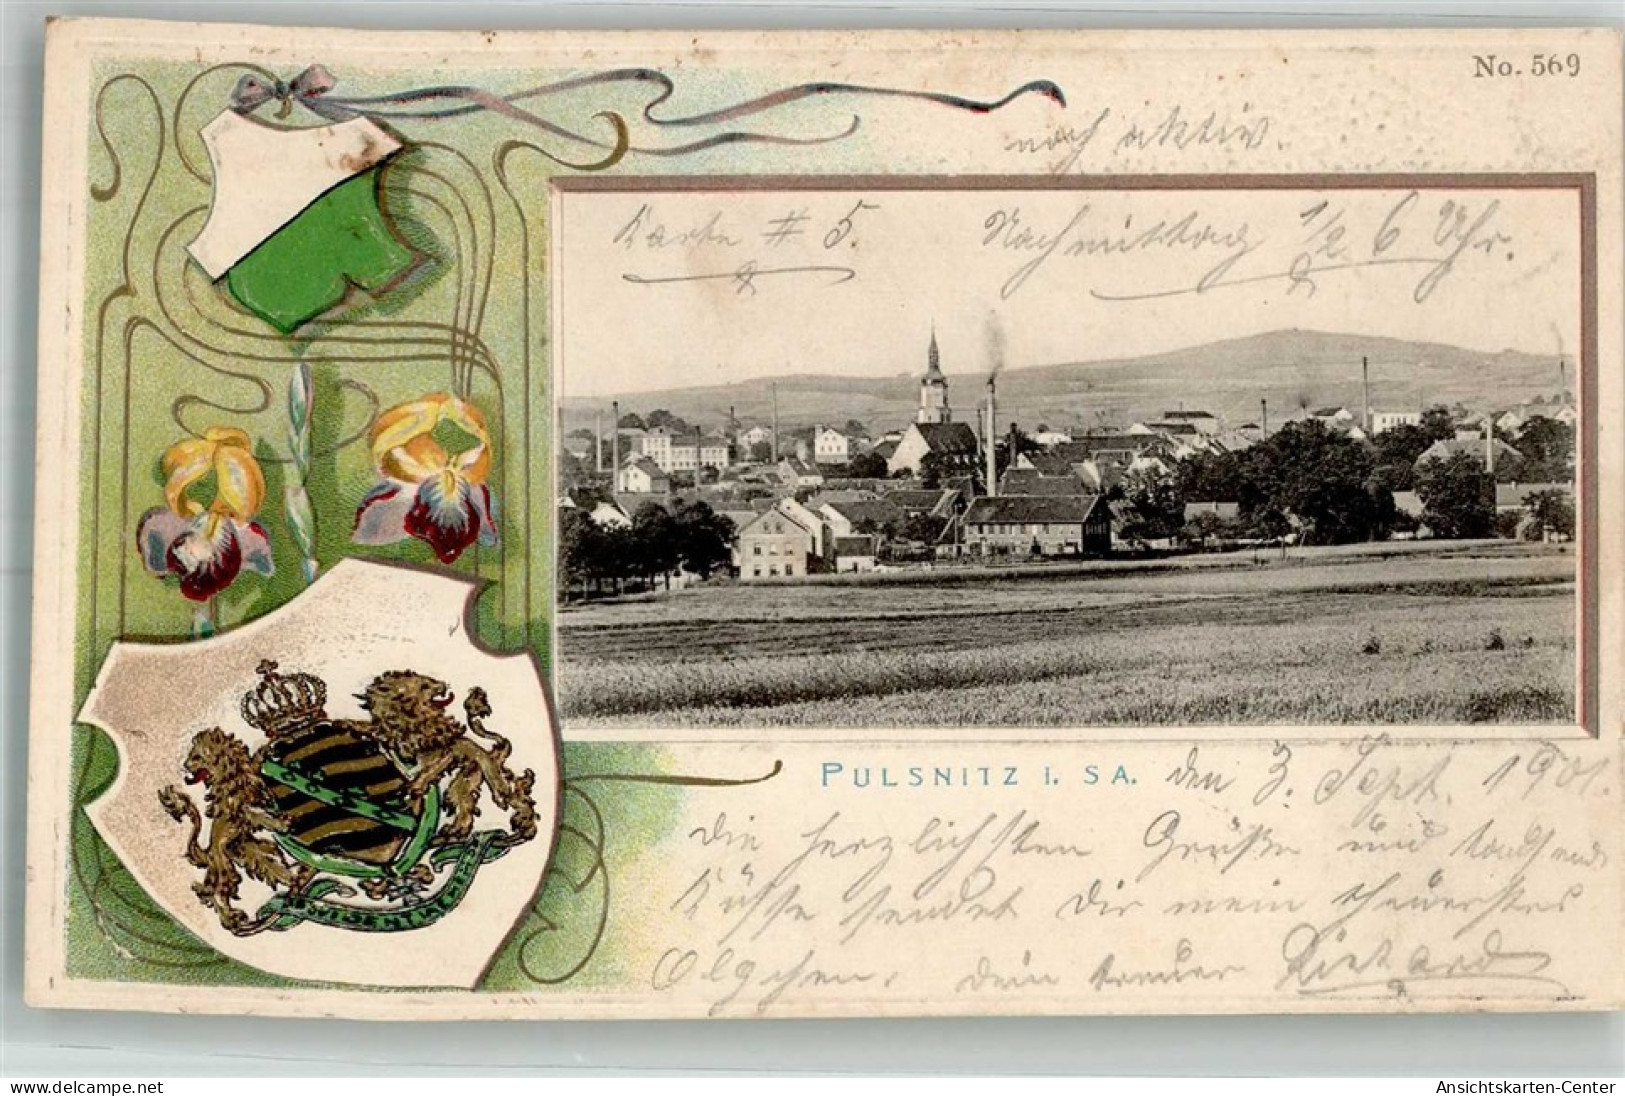 No. 569
noch aktiv.
Karte # 5.
Nachmittag 1/2 6 Uhr.
PULSNITZ i. SA. den 3. Sept. 1901.
Die herzlichsten Grüße und tausende
Küsse sendet Dir mein theuerstes
Olgchen. Dein treuer Richard
www.delcampe.net
Ansichtskarten-Center